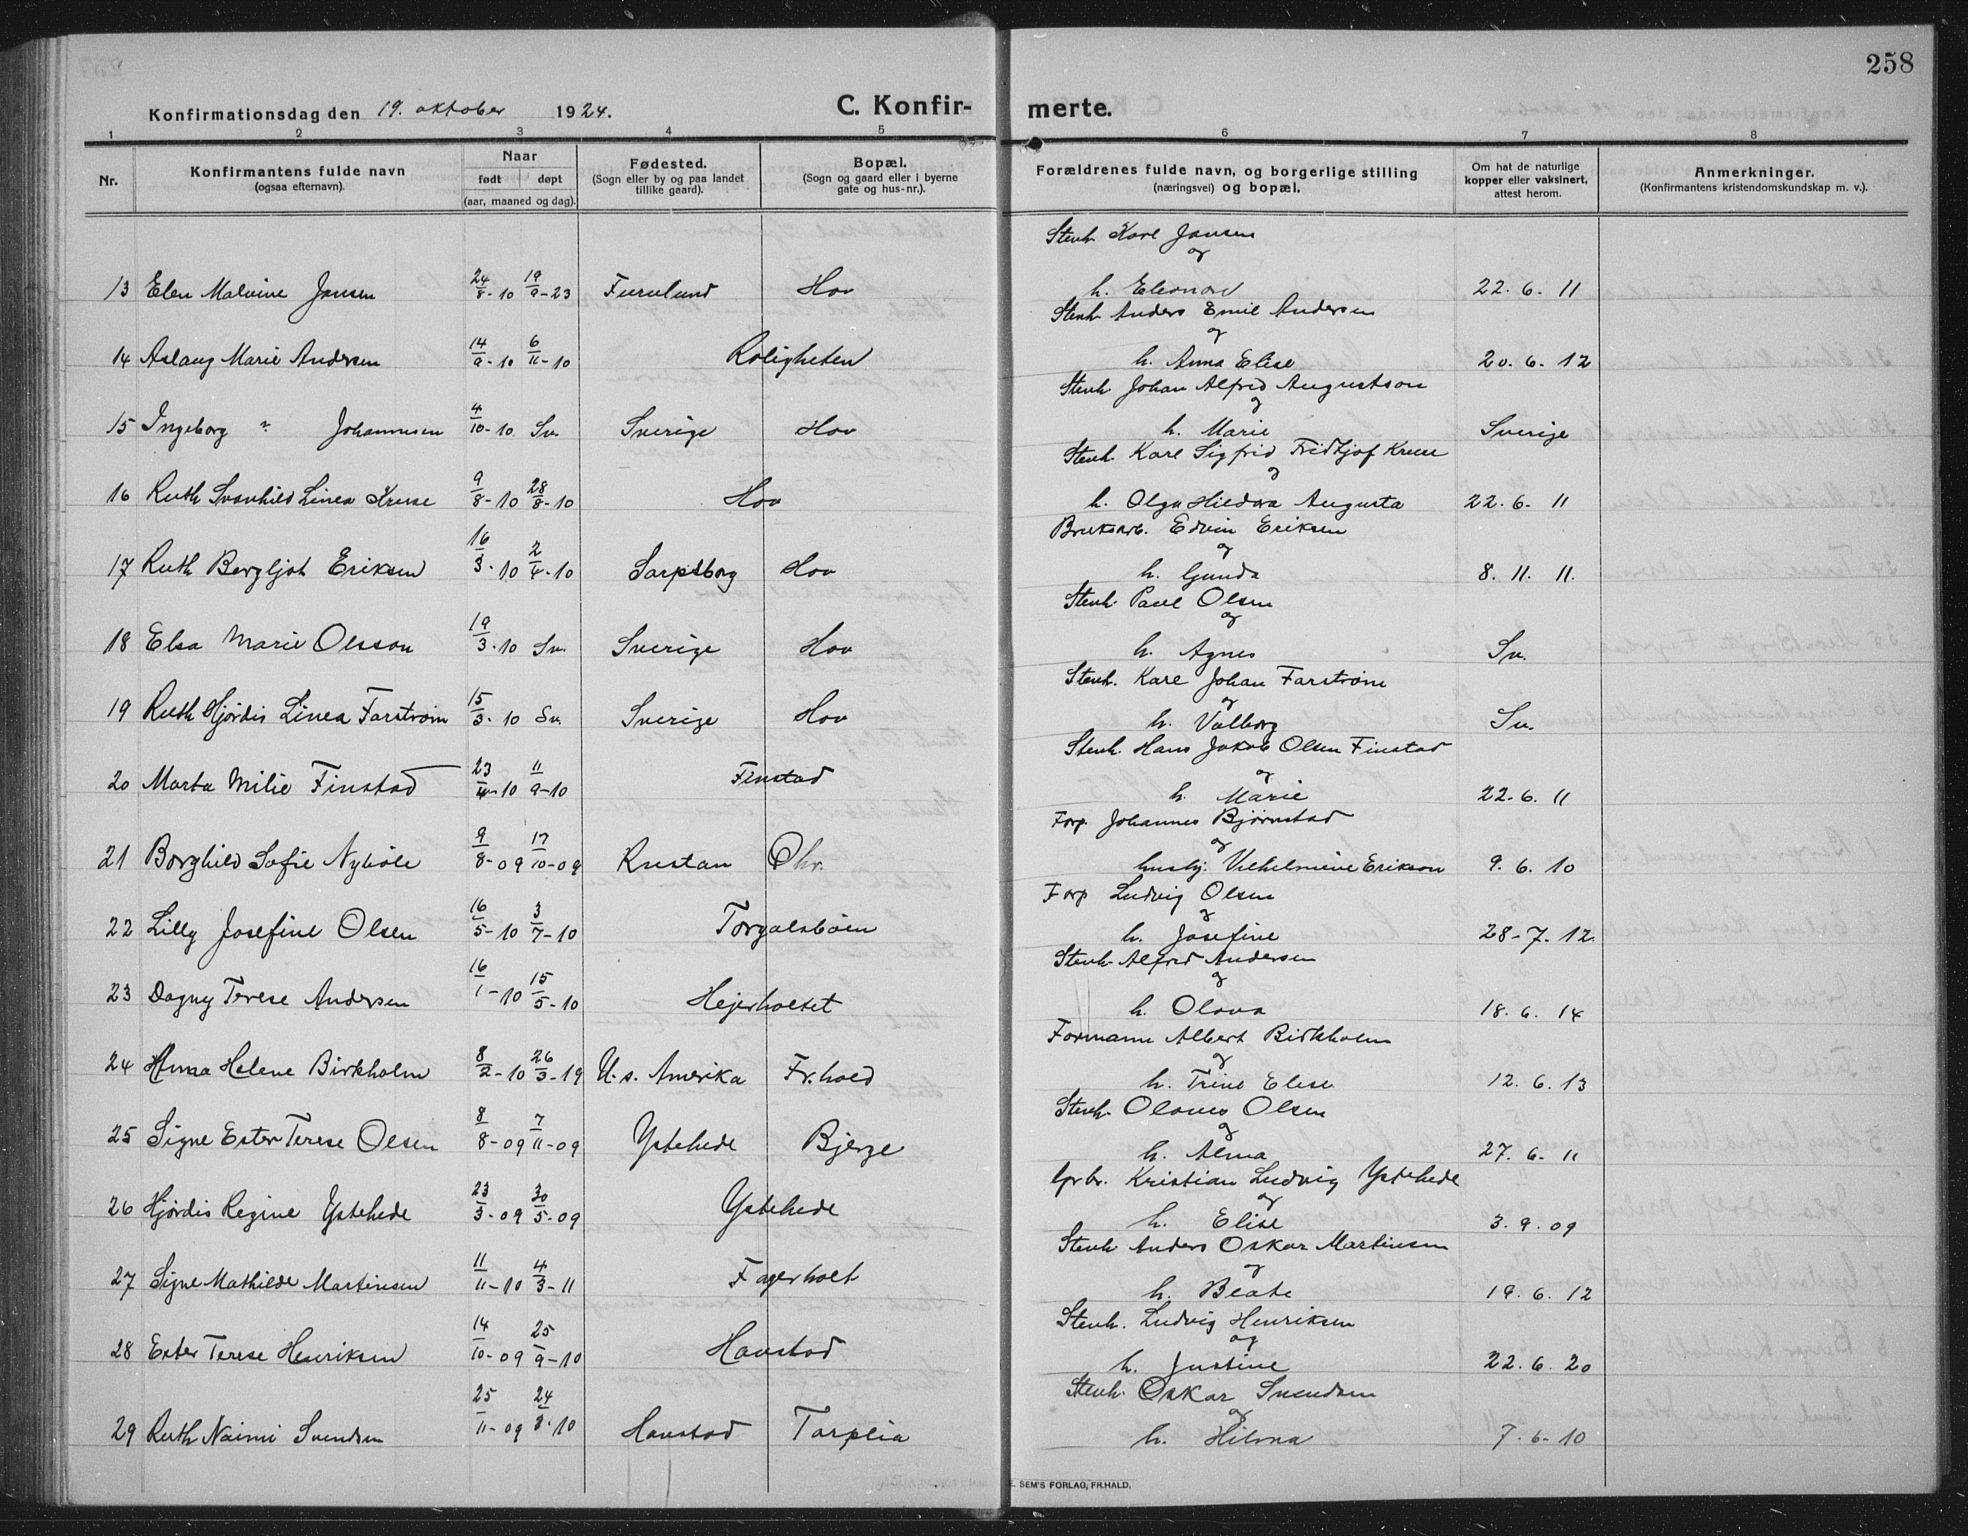 258
Konfirmationsdag den 19. oktober 1924.
C. Konfir- merte.
1 2 3 4 5 6 7 8
Nr.
Konfirmantens fulde navn
(ogsaa efternavn).
Naar
født døpt
(aar, maaned og dag).
Fødested.
(Sogn eller by og paa landet
tillike gaard).
Bopæl.
(Sogn og gaard eller i byerne
gate og hus-nr.).
Forældrenes fulde navn, og borgerlige stilling
(næringsvei) og bopæl.
Om hat de naturlige
kopper eller vaksinert,
attest herom.
Anmerkninger.
(Konfirmantens kristendomskundskap m. v.).
Stenh. Karl Jansen
og
13 Elen Malvine Jansen 24/8-10 19/9-23 Furulund Hov h. Eleonore 22.6.11
Stenh. Anders Emil Andersen
og
14 Aslaug Marie Andersen 14/9-10 6/11-10 Roligheten h. Anna Elise 20.6.12
Stenh. Johan Alfred Augustson
og
15 Ingeborg " Johannesen 4/10-10 Sv. Sverige Hov h. Marie Sverige
Stenh. Karl Sigfrid Fridtjof Kruse
og
16 Ruth Svanhild Linea Kruse 9/8-10 28/8-10 Hov h. Olga Hildora Augusta 22.6.11
Bruksarb. Edvin Eriksen
og
17 Ruth Bergljot Eriksen 16/3-10 2/4-10 Sarpsborg Hov h. Gunda 8.11.11.
Stenh. Paul Olsen
og
18 Elsa Marie Olsson 19/3-10 Sv. Sverige Hov h. Agnes Sv.
Stenh. Karl Johan Farstrøm
og
19 Ruth Hjördis Linea Farstrøm 15/3-10 Sv. Sverige Hov h. Valborg Sv.
Stenh. Hans Jakob Olsen Finstad
og
20 Marta Milie Finstad 23/4-10 11/9-10 Finstad h. Marie 22.6.11
Forp. Johannes Bjørnstad
og
21 Borghild Sofie Nybøle 9/8-09 17/10-09 Rustan husbj. Vilhelmine Erikson 9.6.10
Forp Ludvig Olsen
og
22 Lilly Josefine Olsen 16/5-10 3/7-10 Torgalsbøen h. Josefine 28-7.12.
Stenh. Alfred Andersen
og
23 Dagny Terese Andersen 16/1-10 15/5-10 Hejerholtet h. Olava 18.6.14
Formann Albert Birkholm
og
24 Anna Helene Birkholm 8/2-10 26/3-19 U.s. Amerika Fr.hald h. Trine Elise 12.6.13
Stenh. Olaves Olsen
og
25 Signe Ester Terese Olsen 8/8-09 7/11-09 Ystehede Bjerge h. Alma 27.6-11
Grbr. Kristian Ludvig Ystehede
og
26 Hjørdis Regine Ystehede 23/3-09 30/5-09 Ystehede h. Elise 3.9.09
Stenh Anders Oskar Martinsen
og
27 Signe Mathilde Martinsen 11/11-10 4/3-11 Fagerholt h. Beate 19.6.12
Stenh. Ludvig Henriksen
og
28 Ester Terese Henriksen 14/10-09 25/9-10 Havstad h. Justine 22.6.20
Stenh. Oskar Svendsen
og
29 Ruth Naimi Svendsen 25/11-09 24/8-10 Havstad Torplia h. Hilma 7.6-10
SEM'S FORLAG, FR.HALD.